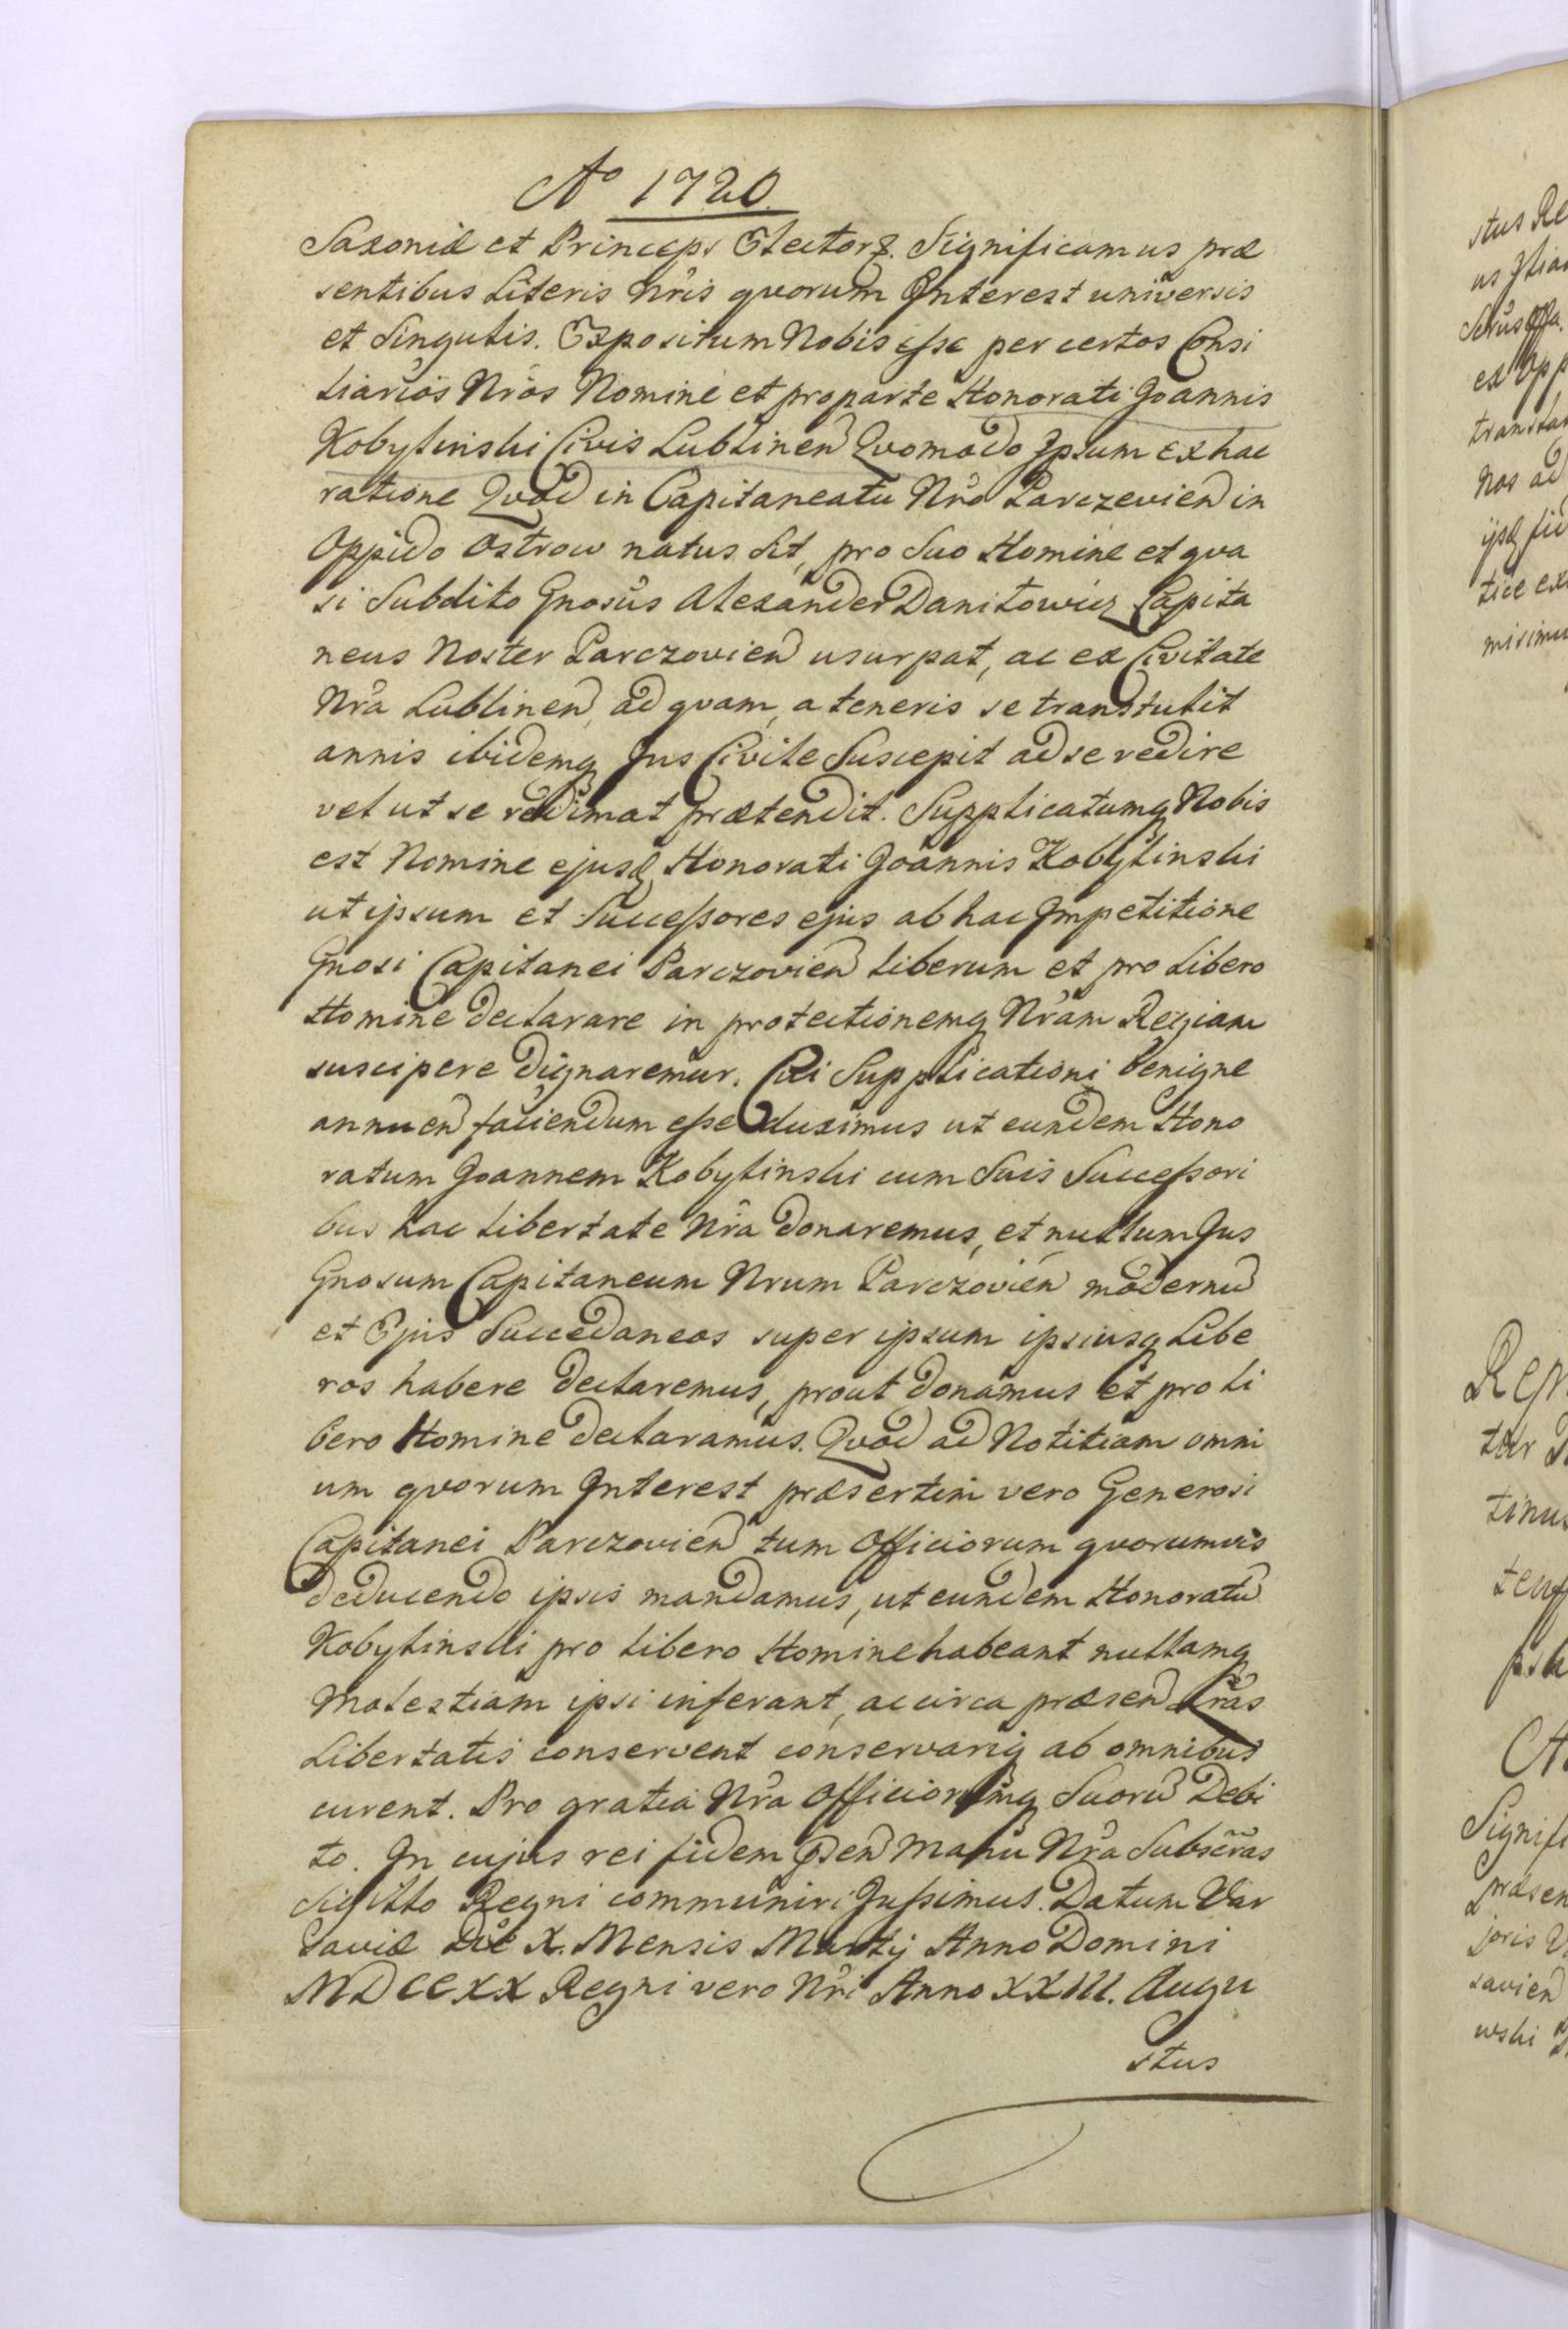 Ao 1720.
Saxoniæ et Princeps Elector &. Significamus præ
sentibus Literis Nris qvorum Interest universis
et Singulis. Expositum Nobis esse per certos Consi
liarios Nros Nomine et pro parte Honorati Joannis
Kobyliński Civis Lublinen Qvomodo Ipsum ex hac
ratione Qvod in Capitaneatu Nro Parczevien in
Oppido Ostrow natus sit, pro Suo Homine et qva
si Subdito Gnosus Alexander Daniłowicz Capita
neus Noster Parczovien usurpat, ac ex Civitate
Nra Lublinen, ad qvam, a teneris se transtulit
annis ibidemq Jus Civile Suscepit ad se redire
vel ut se redimat prætendit. Supplicatumq Nobis
est Nomine ejusd Honorati Joannis Kobyliński
ut ipsum et Successores ejus ab hac Impetitione
Gnosi Capitanei Parczovien liberum et pro Libero
Homine declarare in protectionemq Nram Regiam
suscipere dignaremur. Cui Supplicationi benigne
annuen faciendum esse duximus ut eundem Hono
ratum Joannem Kobyliński cum Suis Successori
bus hac libertate Nra donaremus, et nullum Jus
Gnosum Capitaneum Nrum Parczovien modernu
et Ejus Succedaneos super ipsum ipsiusq Libe
ros habere declaremus, prout donamus et pro li
bero Homine declaramus. Qvod ad Notitiam omni
um qvorum Interest præsertim vero Generosi
Capitanei Parczovien tum Officiorum qvorumvis
deducendo ipsis mandamus, ut eundem Honoratu
Kobyliński pro libero Homine habeant nullamq
Molestiam ipsi inferant, ac circa præsen Lras
Libertatis conservent conservariq ab omnibus
curent. Pro gratia Nra Officiorumq Suoru Debi
to. In cujus rei fidem psen Manu Nra Subscras
Sigillo Regni communiri Jussimus. Datum Var
saviæ Die X. Mensis Martij Anno Domini
MDCCXX Regni vero Nri Anno XXIII. Augu
stus
stus
Serus
ex Opp
nos ad
tice ex
misimu
tinus
Signifi
præsen
joris
savien
wski